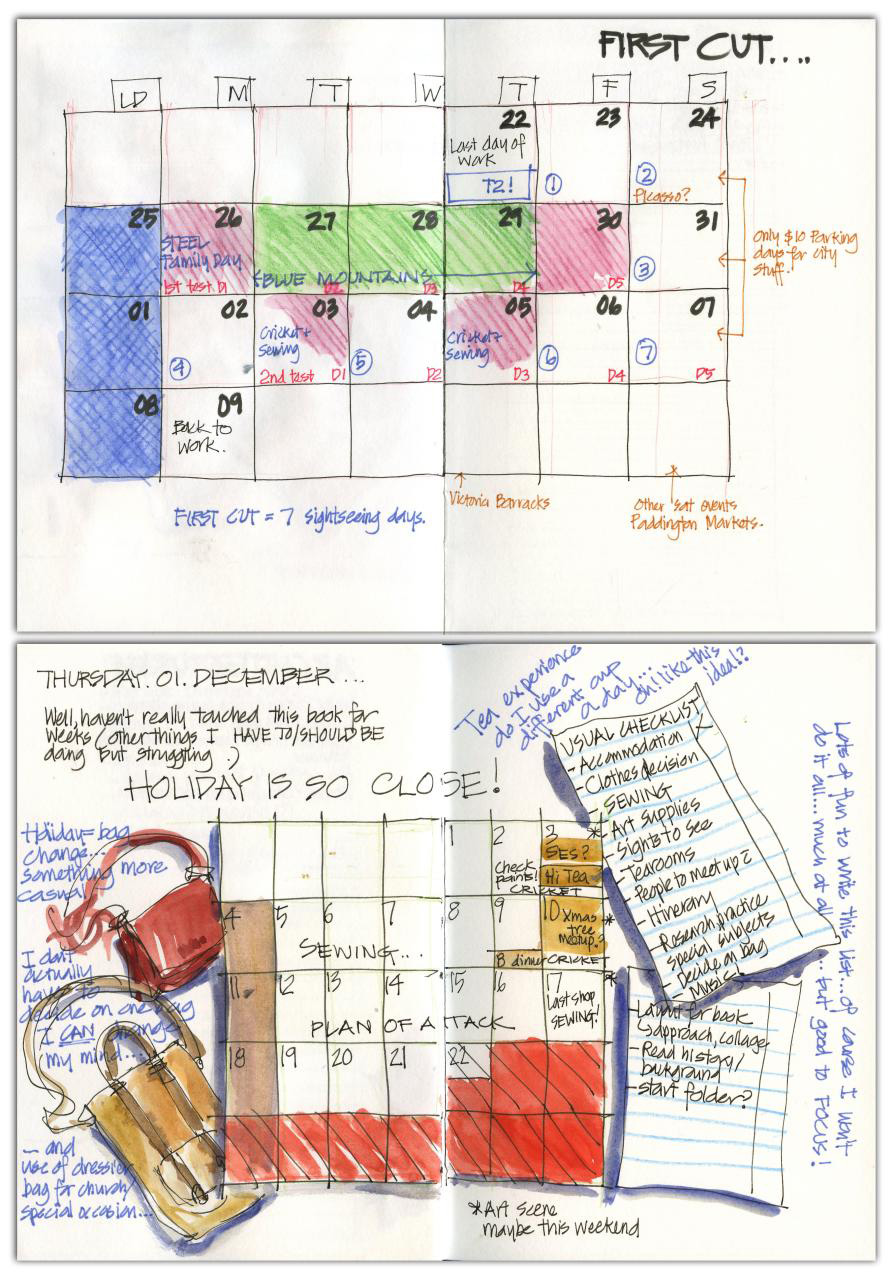 FIRST CUT....
LD M T W T F S
22 23 24
Last day of
work
T2!
1
2
Picasso?
25 26 27 28 29 30 31
STEEL
Family Day
1st test D1
BLUE MOUNTAINS
D2 D3 D4 D5
3
Only $10 Parking
days for city
stuff!
01 02 03 04 05 06 07
4
Cricket +
Sewing
2nd test D1
5
D2
Cricket +
Sewing
D3
6
D4
7
D5
08 09
Back to
Work.
Victoria Barracks
Other sat events
Paddington Markets.
FIRST CUT = 7 sightseeing days.
THURSDAY. 01. DECEMBER ...
Well, haven't really touched this book for
weeks (other things I HAVE TO/SHOULD BE
doing but struggling :)
HOLIDAY IS SO CLOSE!
Tea experience
do I use a
different cup
a day...
oh! like this
idea!?
USUAL CHECKLIST
- Accommodation
- Clothes decision
- SEWING
- Art supplies
- Sights to see
- Tearooms
- People to meet up
- Itinerary
- Research, practice
special subjects
- Decide on bag
- Music!
- Layout for book
approach, collage
- Read history/
background
- start folder?
Lots of fun to write this list... of course I won't
do it all... much at all... but good to FOCUS!
Holiday = bag
change...
something more
casual
I don't
actually
have to
decide on one bag
I CAN change
my mind....
- and
use of dressier
bag for church/
special occasion...
1 2 3 *
Check
paints!
SES?
Hi Tea
CRICKET
4 5 6 7 8 9 10 *
SEWING...
Xmas
tree
meetup?
B dinner CRICKET
11 12 13 14 15 16 17 *
PLAN OF ATTACK
Last shop
SEWING!
18 19 20 21 22
*Art Scene
maybe this weekend